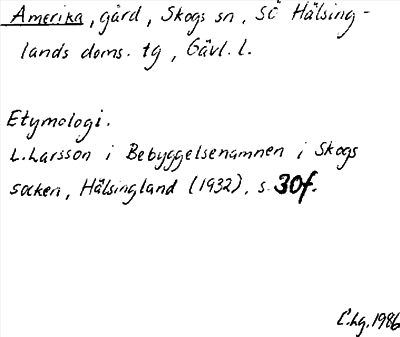 Amerika, gård, Skogs sn, SÖ Hälsing-
lands doms. tg, Gävl. l.
Etymologi.
L. Larsson i Bebyggelsenamnen i Skogs
socken, Hälsingland (1932), s. 30f.
1986